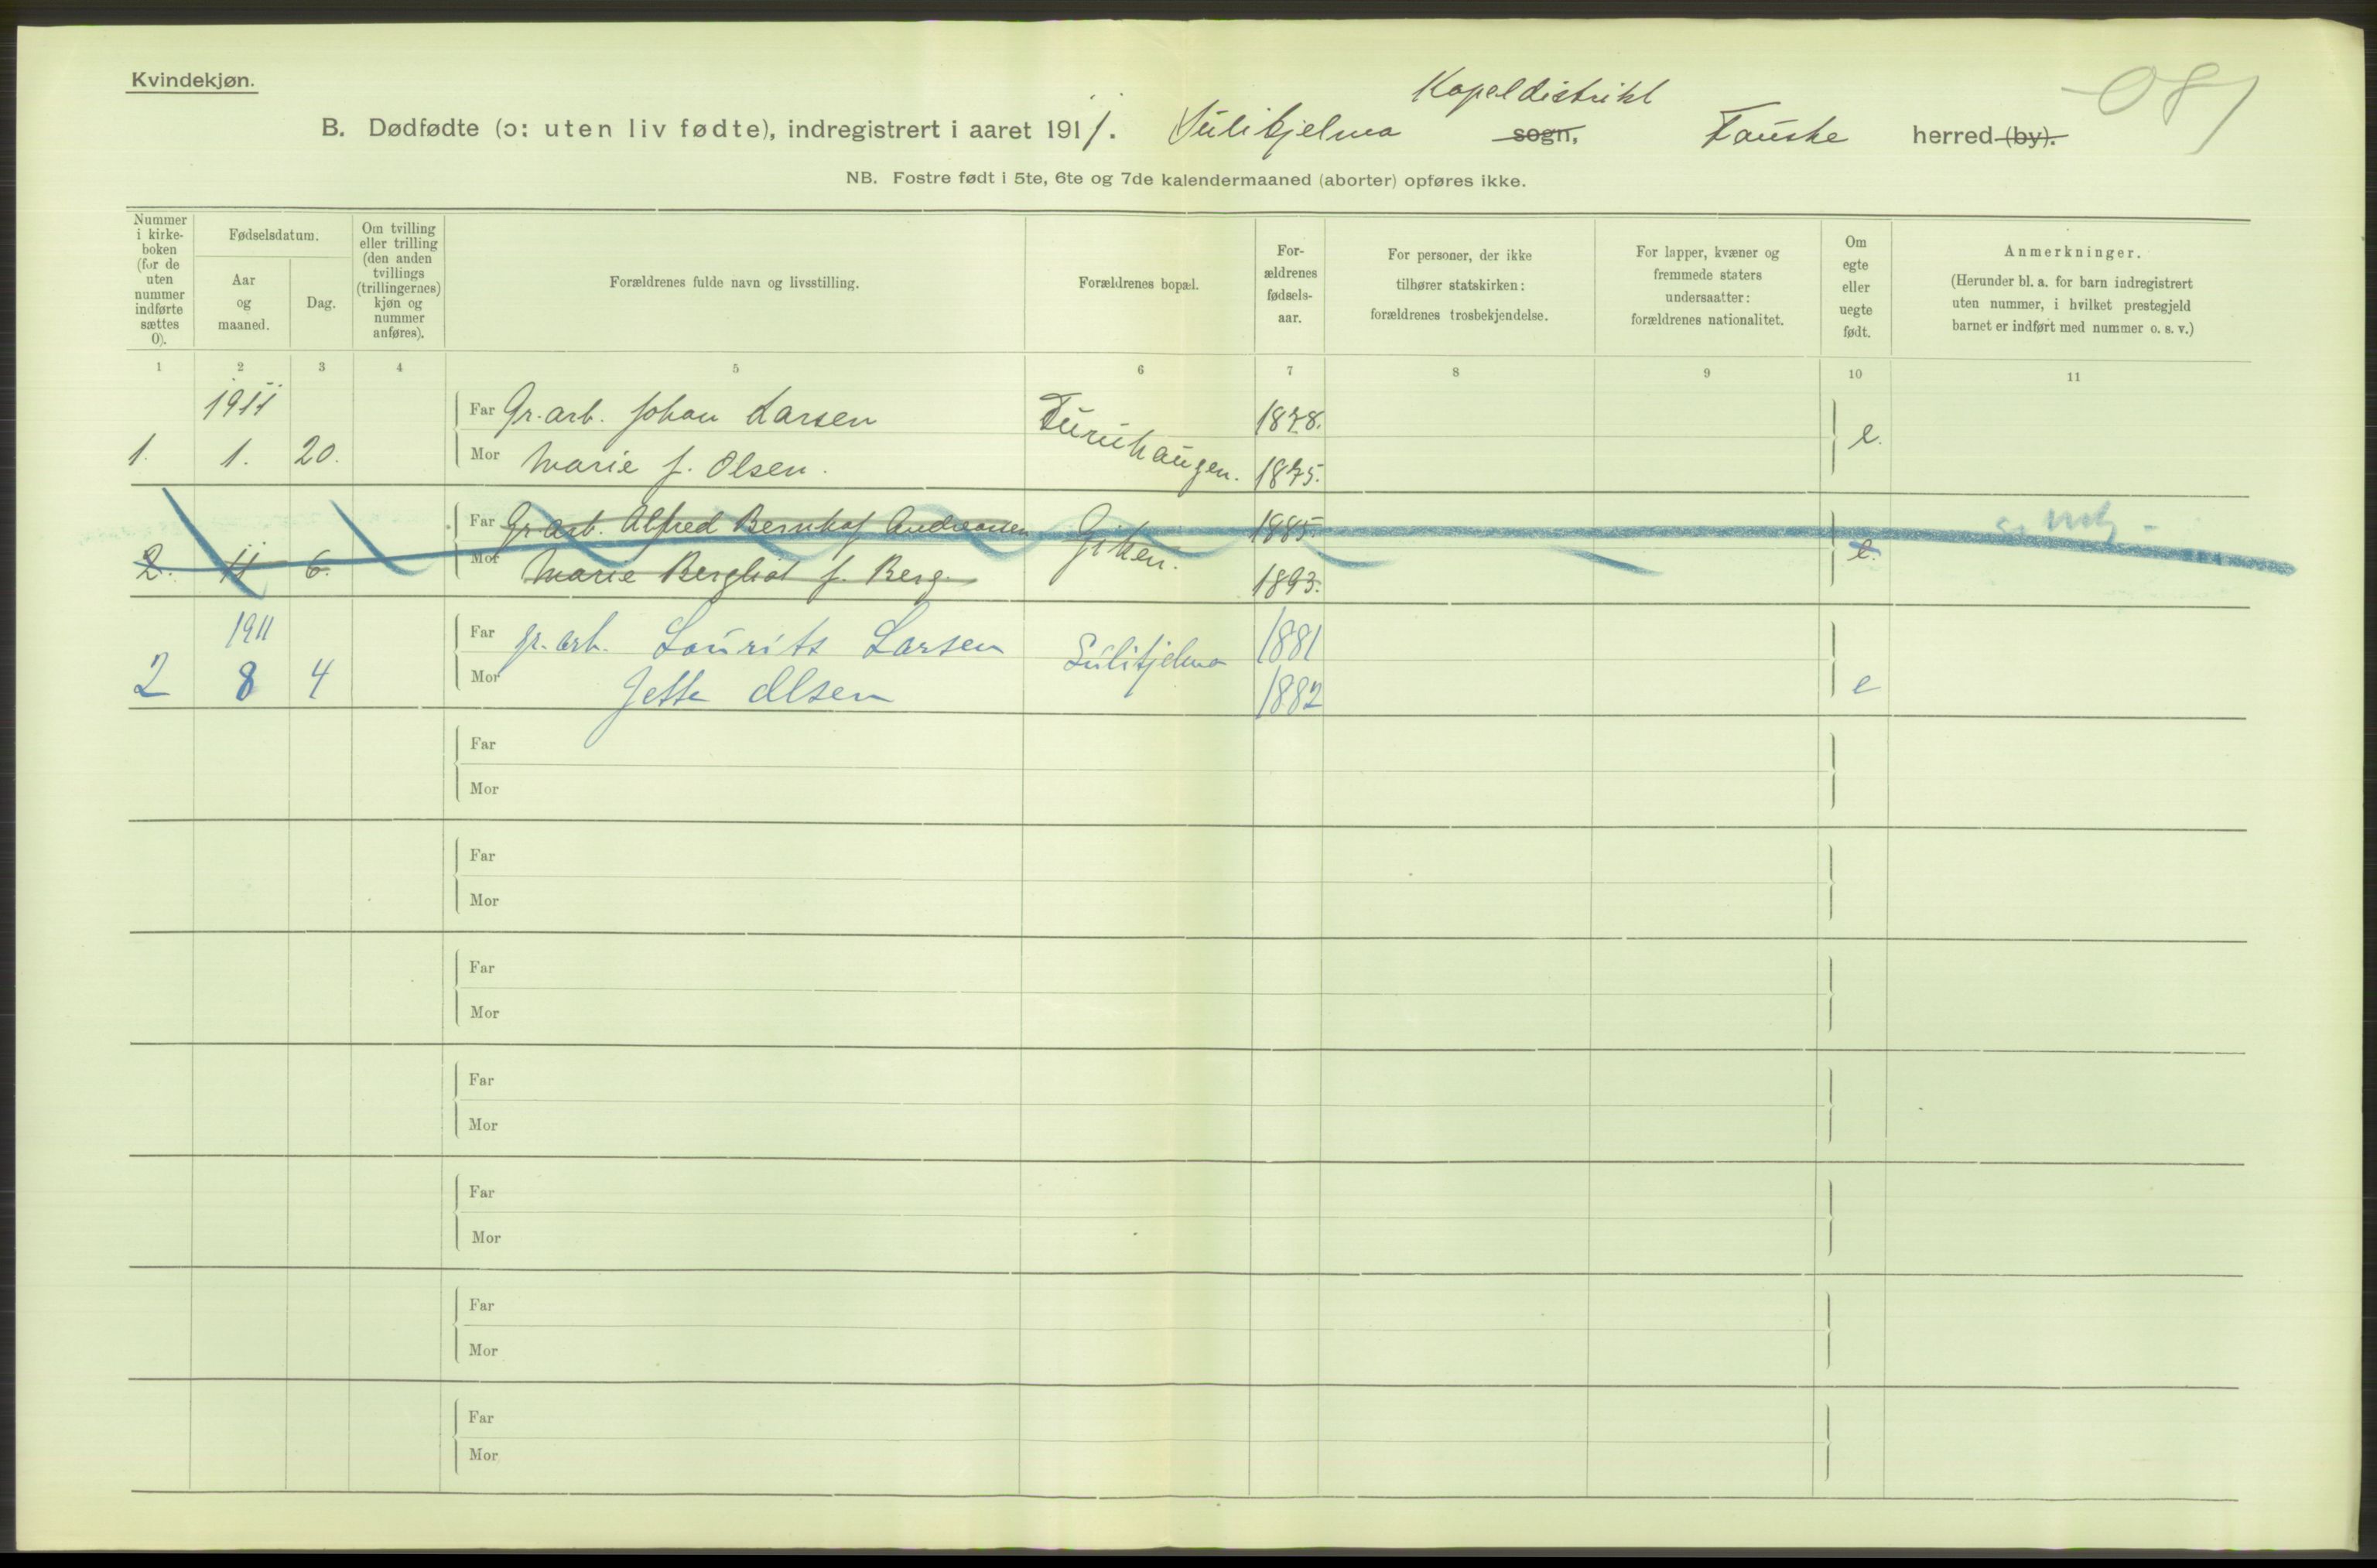 Kvindekjøn.
Kapeldistrikt
B. Dødfødte (ɔ: uten liv fødte), indregistrert i aaret 1911. Sulitjelma sogn, Fauske herred (by).
NB. Fostre født i 5te, 6te og 7de kalendermaaned (aborter) opføres ikke.
Nummer i kirke-boken (for de uten nummer indførte sættes 0).
Fødselsdatum.
Aar og maaned.
Dag.
Om tvilling eller trilling (den anden tvillings (trillingernes) kjøn og nummer anføres).
Forældrenes fulde navn og livsstilling.
Forældrenes bopæl.
For-ældrenes fødsels-aar.
For personer, der ikke tilhører statskirken: forældrenes trosbekjendelse.
For lapper, kvæner og fremmede staters undersaatter: forældrenes nationalitet.
Om egte eller uegte født.
Anmerkninger.
(Herunder bl. a. for barn indregistrert uten nummer, i hvilket prestegjeld barnet er indført med nummer o. s. v.)
1 2 3 4 5 6 7 8 9 10 11
1911
Far Gr. arb. Johan Larsen Furuhaugen. 1878.
1. 1. 20. Mor Marie f. Olsen. 1875. e.
Far Gr. arb. Alfred Bernhof Andreassen Giken. 1885.
2. 11 6. Mor Marie Bergliot f. Berg. 1893. e.
1911
Far gr. arb. Laurits Larsen Sulitjelma 1881
2 8 4 Mor Jette Olsen 1882 e
Far
Mor
Far
Mor
Far
Mor
Far
Mor
Far
Mor
Far
Mor
Far
Mor